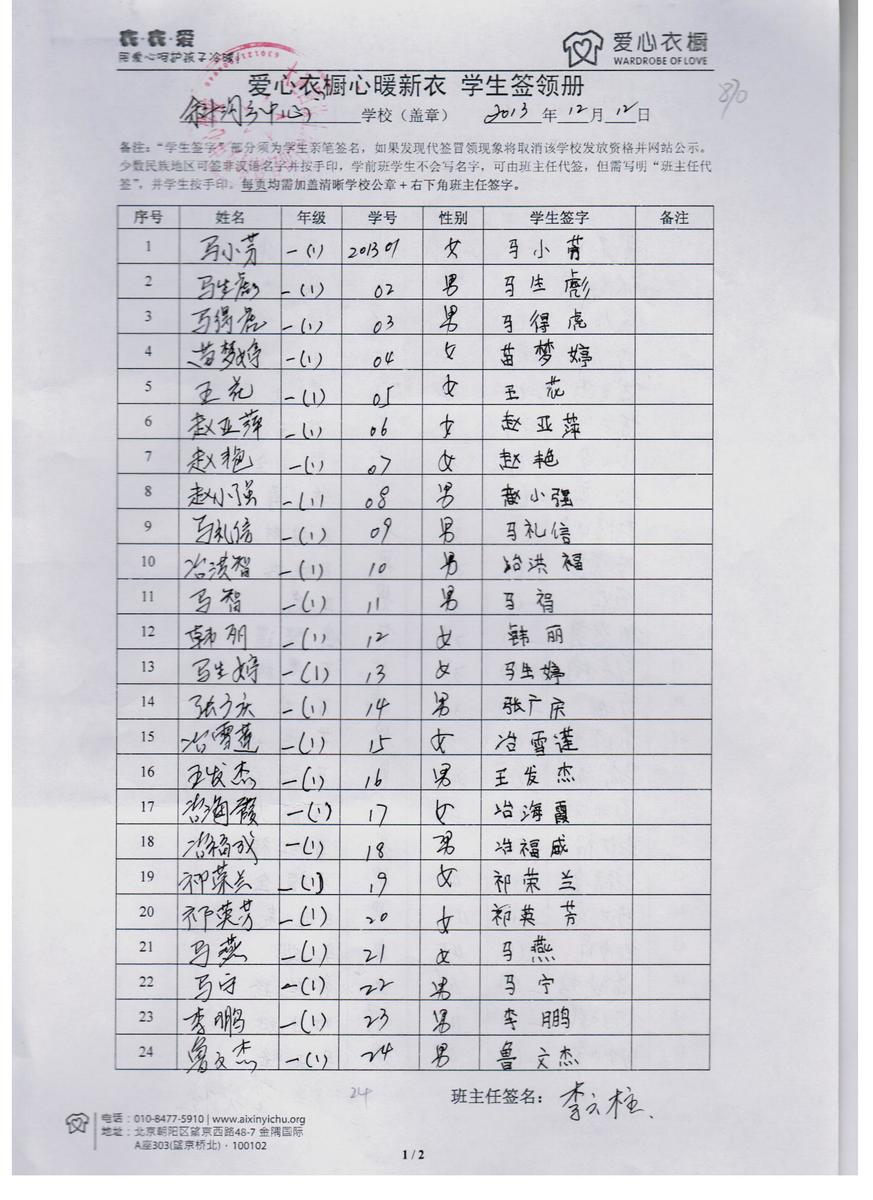 衣·衣·爱
用爱心呵护孩子冷暖!
爱心衣橱
WARDROBE OF LOVE
爱心衣橱心暖新衣 学生签领册
中心 学校（盖章） 2013 年 12 月 12 日
备注：“学生签字”部分须为学生亲笔签名，如果发现代签冒领现象将取消该学校发放资格并网站公示。
少数民族地区可签非汉语名字并按手印，学前班学生不会写名字，可由班主任代签，但需写明“班主任代
签”，并学生按手印。每页均需加盖清晰学校公章+右下角班主任签字。
序号 姓名 年级 学号 性别 学生签字 备注
1 马小芳 一(1) 201301 女 马小芳
2 马生彪 一(1) 02 男 马生彪
3 马得虎 一(1) 03 男 马得虎
4 苗梦婷 一(1) 04 女 苗梦婷
5 王花 一(1) 05 女 王花
6 赵亚萍 一(1) 06 女 赵亚萍
7 赵艳 一(1) 07 女 赵艳
8 赵小强 一(1) 08 男 赵小强
9 马礼信 一(1) 09 男 马礼信
10 冶洪智 一(1) 10 男 冶洪福
11 马智 一(1) 11 男 马智
12 韩丽 一(1) 12 女 韩丽
13 马生婷 一(1) 13 女 马生婷
14 张广庆 一(1) 14 男 张广庆
15 冶雪莲 一(1) 15 女 冶雪莲
16 王发杰 一(1) 16 男 王发杰
17 冶海霞 一(1) 17 女 冶海霞
18 冶福成 一(1) 18 男 冶福成
19 祁荣兰 一(1) 19 女 祁荣兰
20 祁英芳 一(1) 20 女 祁英芳
21 马燕 一(1) 21 女 马燕
22 马宁 一(1) 22 男 马宁
23 李鹏 一(1) 23 男 李鹏
24 鲁文杰 一(1) 24 男 鲁文杰
24
班主任签名： 李云柱
电话：010-8477-5910 | www.aixinyichu.org
地址：北京朝阳区望京西路48-7 金隅国际
A座303(望京桥北)·100102
1 / 2